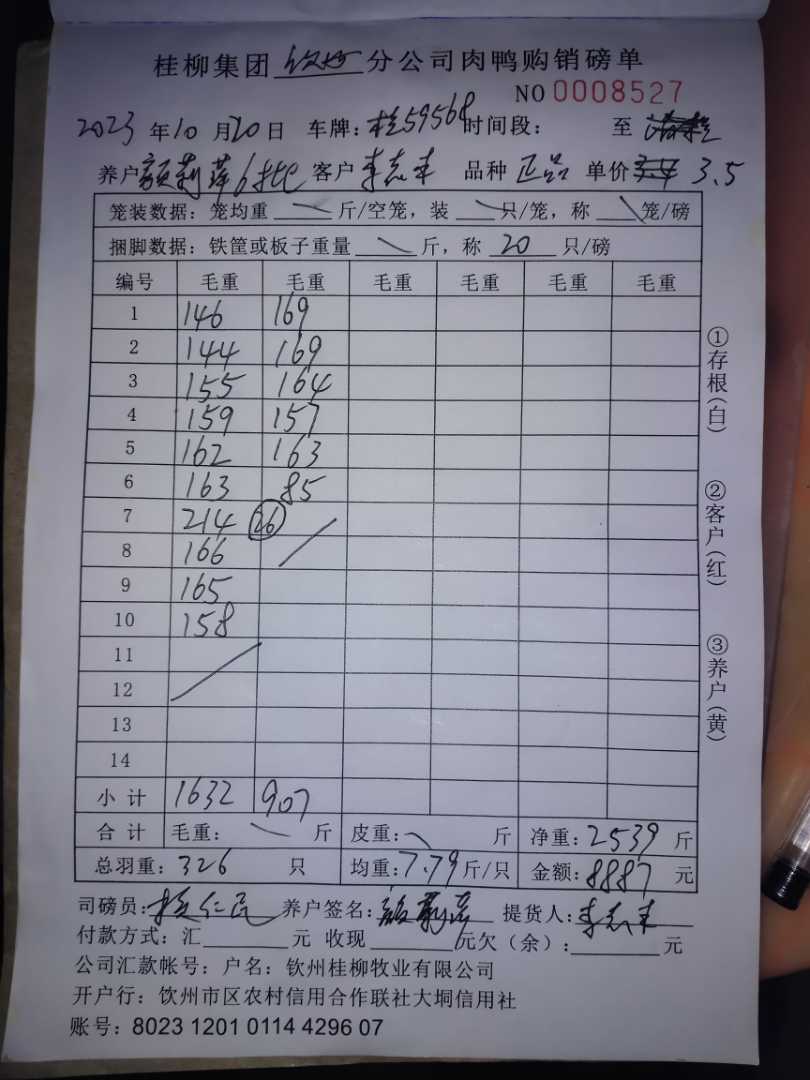 桂柳集团 钦州 分公司肉鸭购销磅单
NO 0008527
2023 年 10 月 20 日 车牌：桂59568 时间段： 至
养户 颜莉萍6批 客户 李志丰 品种 正品 单价 3.4 3.5
笼装数据：笼均重 斤/空笼，装 只/笼，称 笼/磅
捆脚数据：铁筐或板子重量 斤，称 20 只/磅
编号 毛重 毛重 毛重 毛重 毛重 毛重
1 146 169
2 144 169
3 155 164
4 159 157
5 162 163
6 163 85
7 214 26
8 166
9 165
10 158
11
12
13
14
小 计 1632 907
合 计 毛重： 斤 皮重： 斤 净重：2539 斤
总羽重：326 只 均重：7.79 斤/只 金额：8887 元
司磅员： 仁民 养户签名：颜莉萍 提货人：李志丰
付款方式：汇 元 收现 元欠（余）： 元
公司汇款帐号：户名：钦州桂柳牧业有限公司
开户行：饮州市区农村信用合作联社大垌信用社
账号：8023 1201 0114 4296 07
①存根（白）
②客户（红）
③养户（黄）